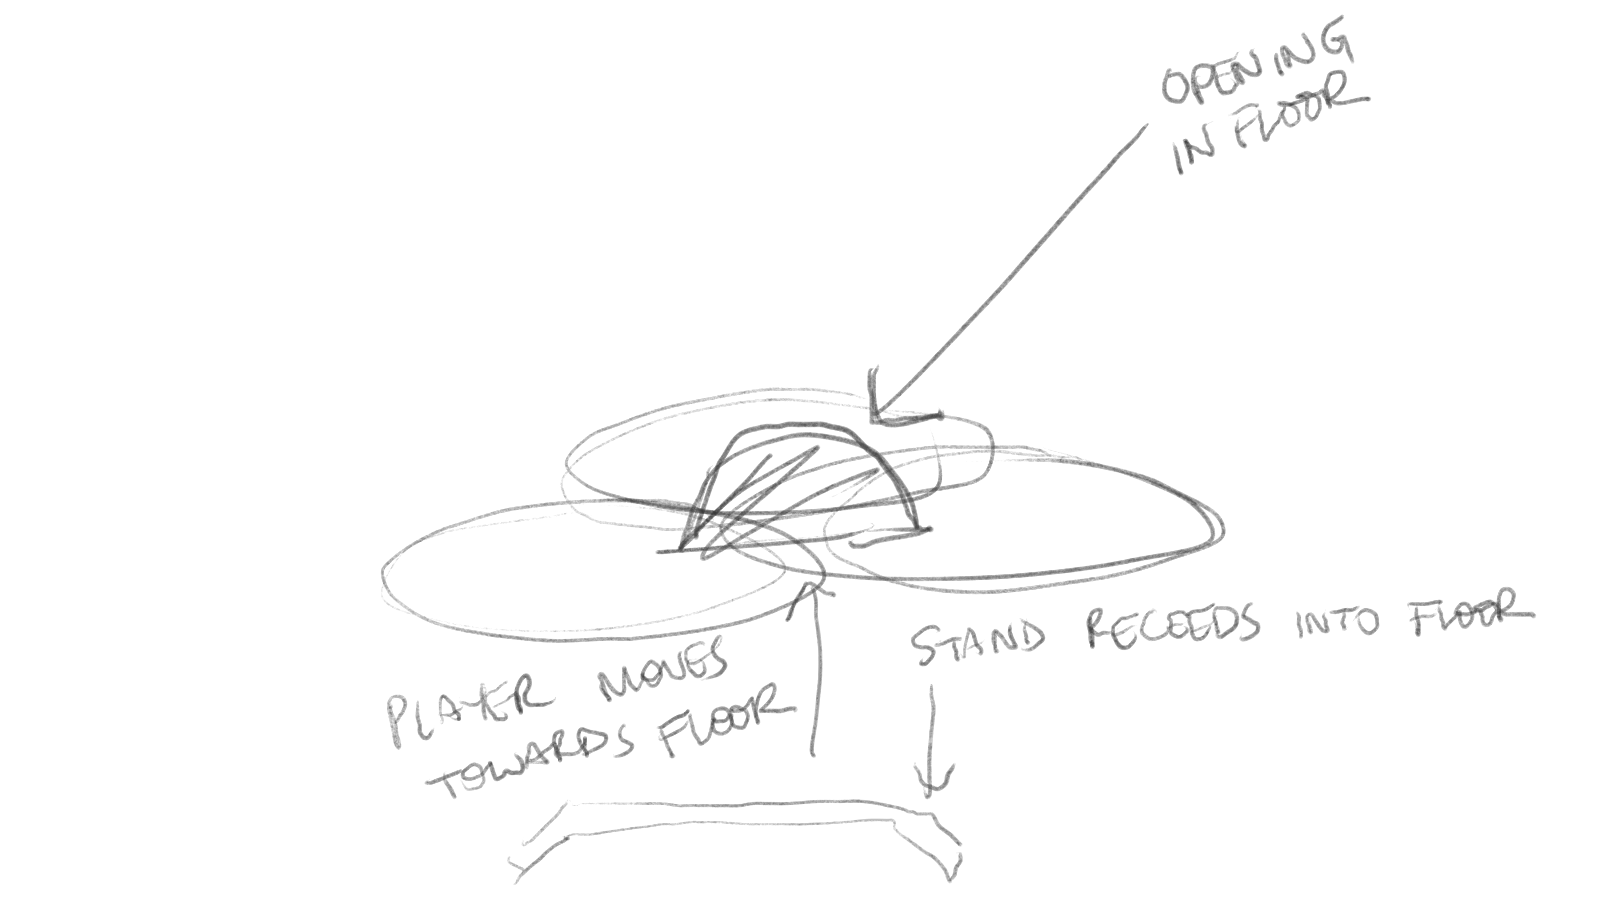 OPENING
IN FLOOR
STAND RECEEDS INTO FLOOR
PLAYER MOVES
TOWARDS FLOOR